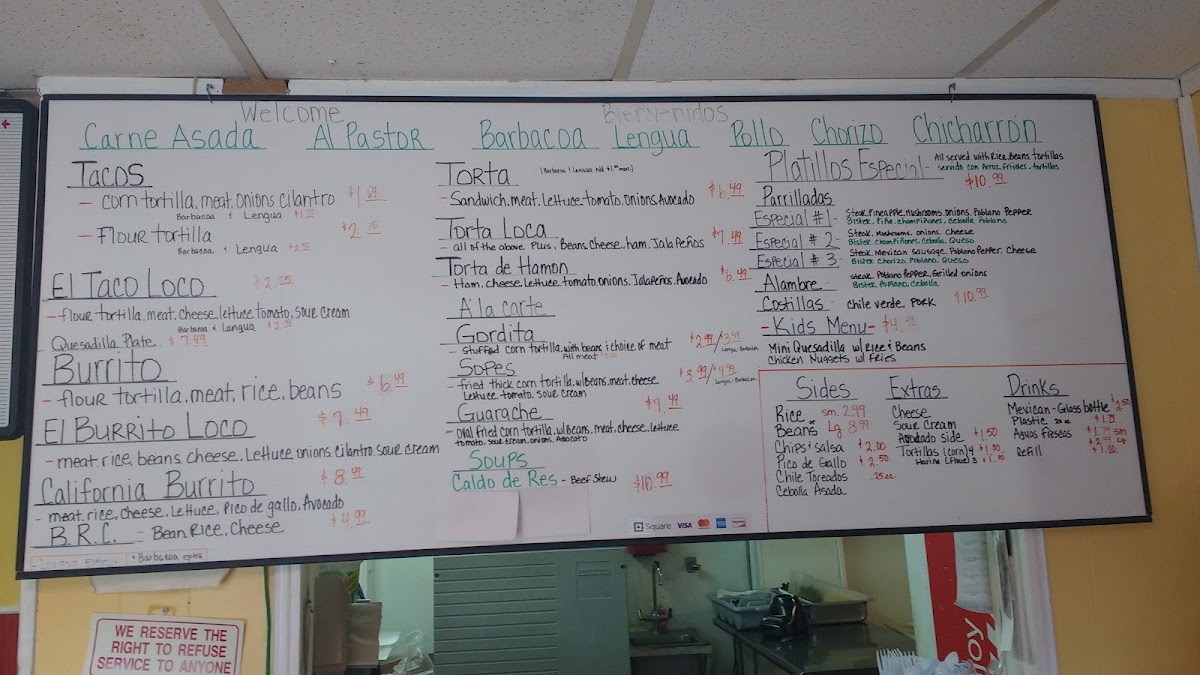 Welcome Bienvenidos
Carne Asada Al Pastor Barbacoa Lengua Pollo Chorizo Chicharrón
Tacos
- corn tortilla, meat, onions cilantro
Barbacoa & Lengua
- flour tortilla $2.15
Barbacoa & Lengua
El Taco Loco
- flour tortilla, meat, cheese, lettuce tomato, sour cream
Barbacoa & Lengua
- Quesadilla Plate $7.49
Burrito $6.49
- flour tortilla, meat, rice, beans
El Burrito Loco $7.49
- meat, rice, beans, cheese, Lettuce onions, cilantro, sour cream
California Burrito $8.49
- meat, rice, cheese, Lettuce, Pico de gallo, Avocado
B.R.C. = Bean Rice, Cheese $4.99
* Barbacoa extra
Torta (Barbacoa & Lengua Add $1.00 more)
- Sandwich, meat, lettuce, tomato, onions Avocado $6.49
Torta Loca
- all of the above plus, Beans, cheese, ham, Jalapeños $7.49
Torta de Hamon
- Ham, cheese, lettuce, tomato, onions, Jalapeños, Avocado $6.49
A'la carte
Gordita
- stuffed corn tortilla, with beans & choice of meat $2.99/3.99
All meat Lengua-Barbacoa
Sopes
- fried thick corn tortilla, w/beans, meat, cheese $3.99/$4.99
Lettuce, tomato, sour cream Lengua-Barbacoa
Guarache $7.49
- oval fried corn tortilla, w/Beans, meat, cheese, lettuce
tomato, sour cream, onions, Avocato
Soups
Caldo de Res - Beef Stew $10.99
Square VISA
Platillos Especial- All served with Rice, Beans tortillas
servido con Arroz, frijoles, tortillas
$10.99
Parrilladas
Especial #1- Steak, Pineapple, Mushrooms, onions, Poblano Pepper
Bistek, Piña, champiñones, cebolla, Poblano
Especial # 2- Steak, Mushrooms, onions, cheese
Bistek, champiñones, Cebolla, Queso
Especial # 3- Steak, Mexican Sausage, Poblano Pepper, cheese
Bistek Chorizo, Poblano, Queso
Alambre- steak, Poblano Pepper, Grilled onions
Bistek Poblano, cebolla
Costillas- chile verde, Pork $10.99
- Kids Menu -
Mini Quesadilla w/ Rice & Beans
Chicken Nuggets w/ Fries
Sides
Rice or Beans sm. 2.99
Lg 8.99
Chips & salsa $2.00
Pico de Gallo $2.50
Chile Toreados .25 ea.
Cebolla Asada
Extras
Cheese
Sour Cream
Avodado side $1.50
Tortillas (corn) 4 $1.00
Harina (flour) 3
Drinks
Mexican-Glass bottle $2.50
Plastic 20 oz
Aguas Frescas sm
Lg
Refill
WE RESERVE THE
RIGHT TO REFUSE
SERVICE TO ANYONE